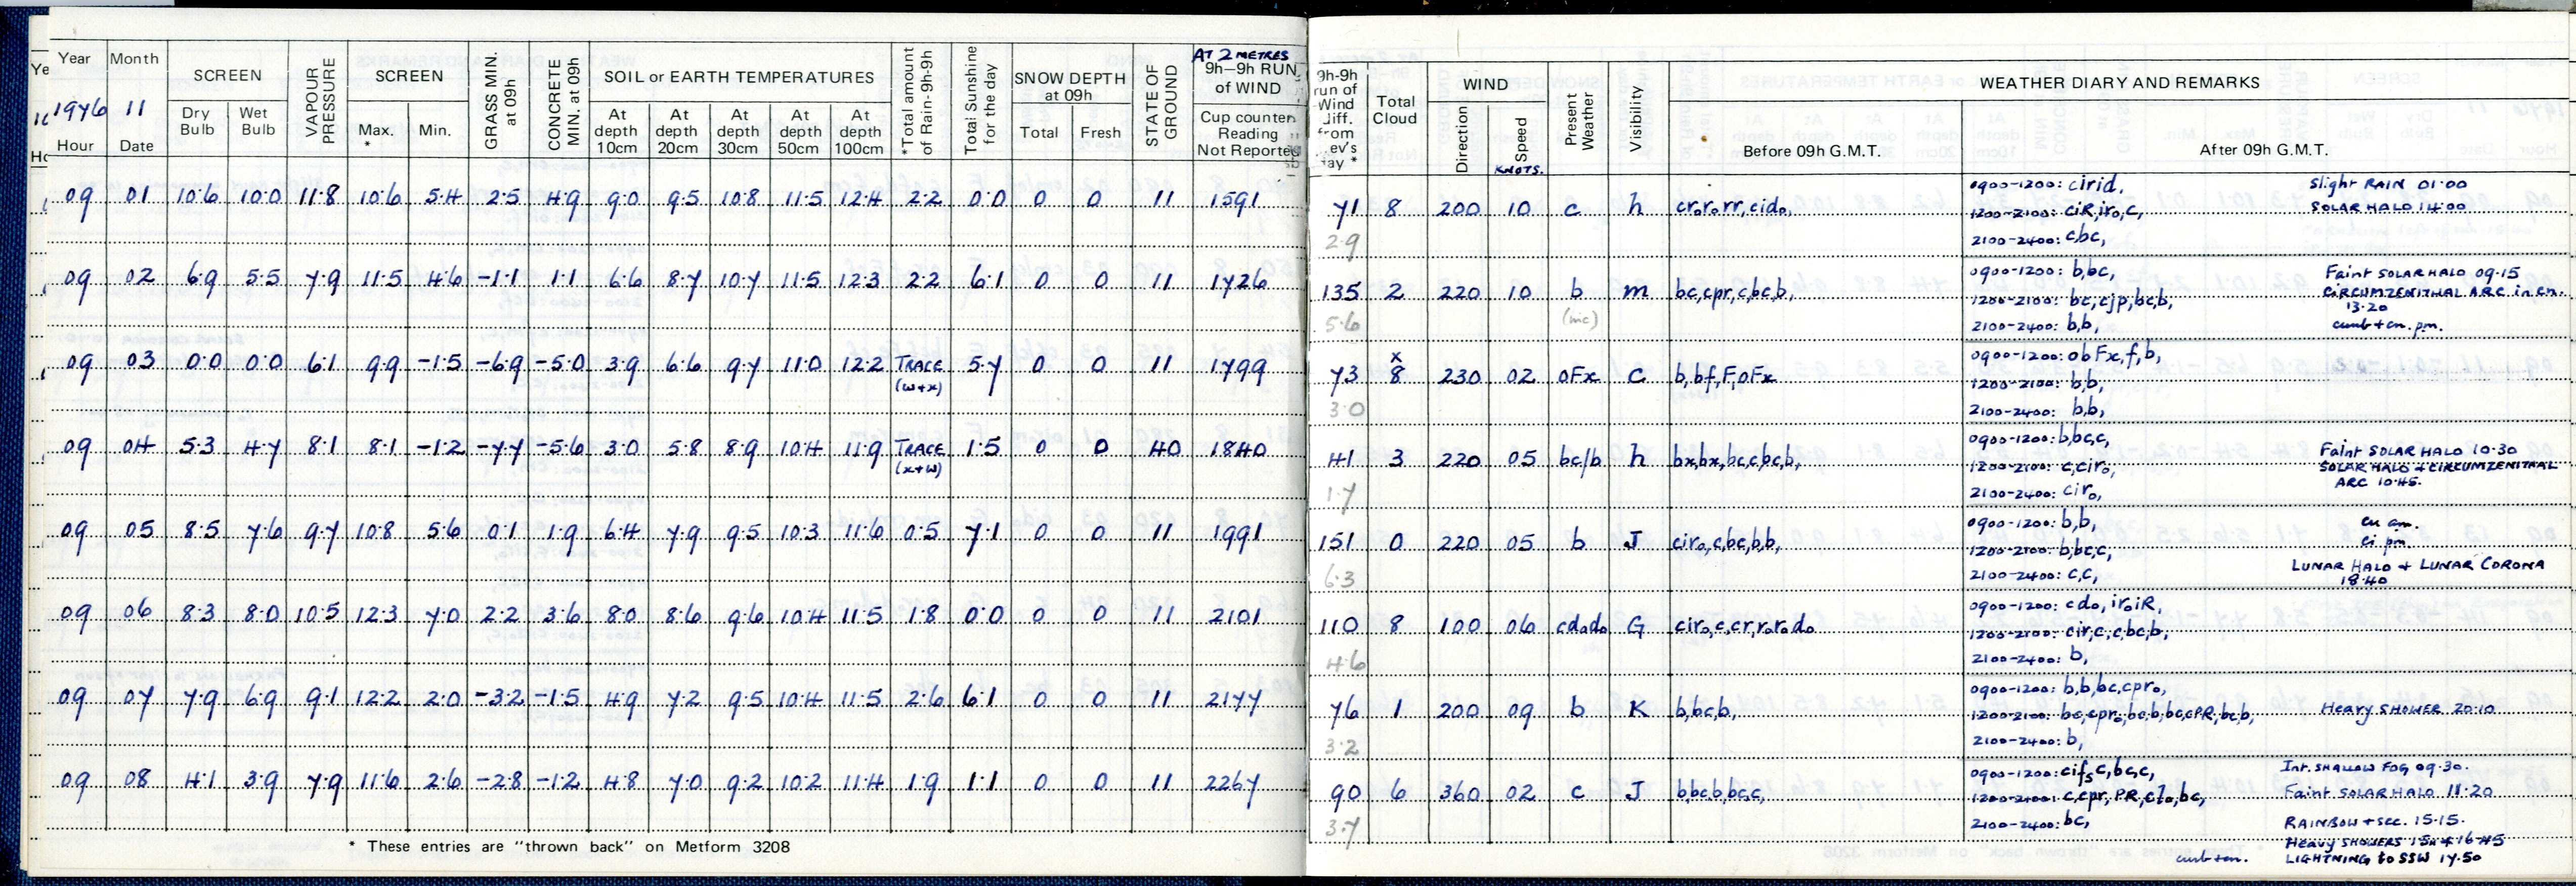 Year Month SCREEN VAPOUR PRESSURE SCREEN GRASS MIN. at 09h CONCRETE MIN. at 09h SOIL or EARTH TEMPERATURES *Total amount of Rain-9h-9h Total Sunshine for the day SNOW DEPTH at 09h STATE OF GROUND AT 2 METRES 9h–9h RUN of WIND
1976 11
Hour Date Dry Bulb Wet Bulb Max. * Min. At depth 10cm At depth 20cm At depth 30cm At depth 50cm At depth 100cm Total Fresh Cup counter Reading Not Reported
09 01 10.6 10.0 11.8 10.6 5.4 2.5 4.9 9.0 9.5 10.8 11.5 12.4 2.2 0.0 0 0 11 1591
09 02 6.9 5.5 7.9 11.5 4.6 -1.1 1.1 6.6 8.7 10.7 11.5 12.3 2.2 6.1 0 0 11 1726
09 03 0.0 0.0 6.1 9.9 -1.5 -6.9 -5.0 3.9 6.6 9.7 11.0 12.2 TRACE (w+x) 5.7 0 0 11 1799
09 04 5.3 4.7 8.1 8.1 -1.2 -7.7 -5.6 3.0 5.8 8.9 10.4 11.9 TRACE (x+w) 1.5 0 0 40 1840
09 05 8.5 7.6 9.7 10.8 5.6 0.1 1.9 6.4 7.9 9.5 10.3 11.6 0.5 7.1 0 0 11 1991
09 06 8.3 8.0 10.5 12.3 7.0 2.2 3.6 8.0 8.6 9.6 10.4 11.5 1.8 0.0 0 0 11 2101
09 07 7.9 6.9 9.1 12.2 2.0 -3.2 -1.5 4.9 7.2 9.5 10.4 11.5 2.6 6.1 0 0 11 2177
09 08 4.1 3.9 7.9 11.6 2.6 -2.8 -1.2 4.8 7.0 9.2 10.2 11.4 1.9 1.1 0 0 11 2267
* These entries are "thrown back" on Metform 3208
9h-9h run of Wind diff. from ev's ay * Total Cloud WIND Present Weather Visibility WEATHER DIARY AND REMARKS
Direction Speed KNOTS. Before 09h G.M.T. After 09h G.M.T.
71 8 200 10 c h cr₀r₀rr,cid₀, 0900-1200: cirid, Slight RAIN 01.00
2.9 1200-2100: ciR,ir₀,c, SOLAR HALO 14.00
2100-2400: c,bc,
135 2 220 10 b m bc,cpr,c,bc,b, 0900-1200: b,bc, Faint SOLAR HALO 09.15
5.6 (mc) 1200-2100: bc,cjp,bc,b, CIRCUMZENITHAL ARC in cn. 13.20
2100-2400: b,b, cumb+cn. pm.
73 x 8 230 02 oFx C b,bf,F,oFx 0900-1200: obFx,f,b,
3.0 1200-2100: b,b,
2100-2400: b,b,
41 3 220 05 bc/b h bx,bx,bc,c,bc,b, 0900-1200: b,bc,c, Faint SOLAR HALO 10.30
1.7 1200-2100: c,cir₀, SOLAR HALO + CIRCUMZENITHAL ARC 10.45.
2100-2400: cir₀,
151 0 220 05 b J cir₀,c,bc,b,b, 0900-1200: b,b, cu am.
6.3 1200-2100: b,bc,c, ci pm.
2100-2400: c,c, LUNAR HALO + LUNAR CORONA 18.40
110 8 100 06 cd₀d₀ G cir₀,c,cr,r₀r₀d₀ 0900-1200: cd₀, ir₀iR,
4.6 1200-2100: cir,c,c,bc,b,
2100-2400: b,
76 1 200 09 b K b,bc,b, 0900-1200: b,b,bc,cpr₀,
3.2 1200-2100: bc,cpr₀,bc,b,bc,cPR,bc,b, Heavy SHOWER 20.10
2100-2400: b,
90 6 360 02 c J b,bc,b,bc,c, 0900-1200: cifₛc,bc,c, Int. SHALLOW FOG 09.30.
3.7 1200-2100: c,cpr, PR,cl₀,bc, Faint SOLAR HALO 11.20
2100-2400: bc, RAINBOW + sec. 15.15.
Heavy SHOWERS
LIGHTNING to SSW 17.50